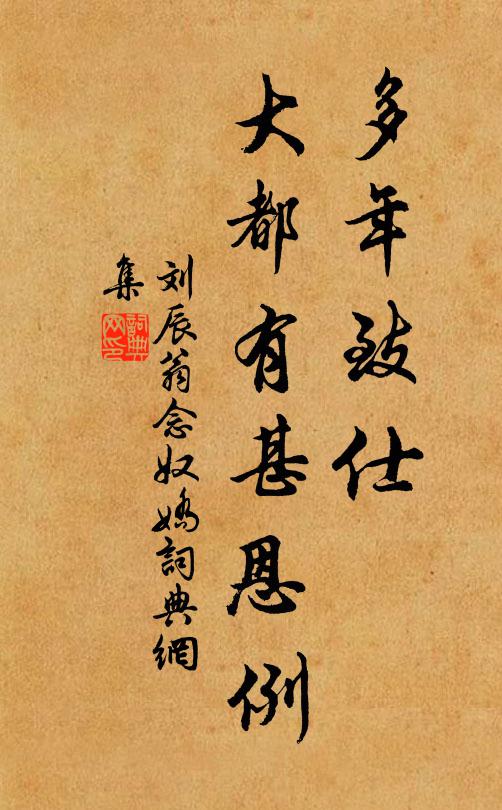 多年致仕
大都有甚恩例
刘辰翁念奴娇詞典網
集
詞典网印